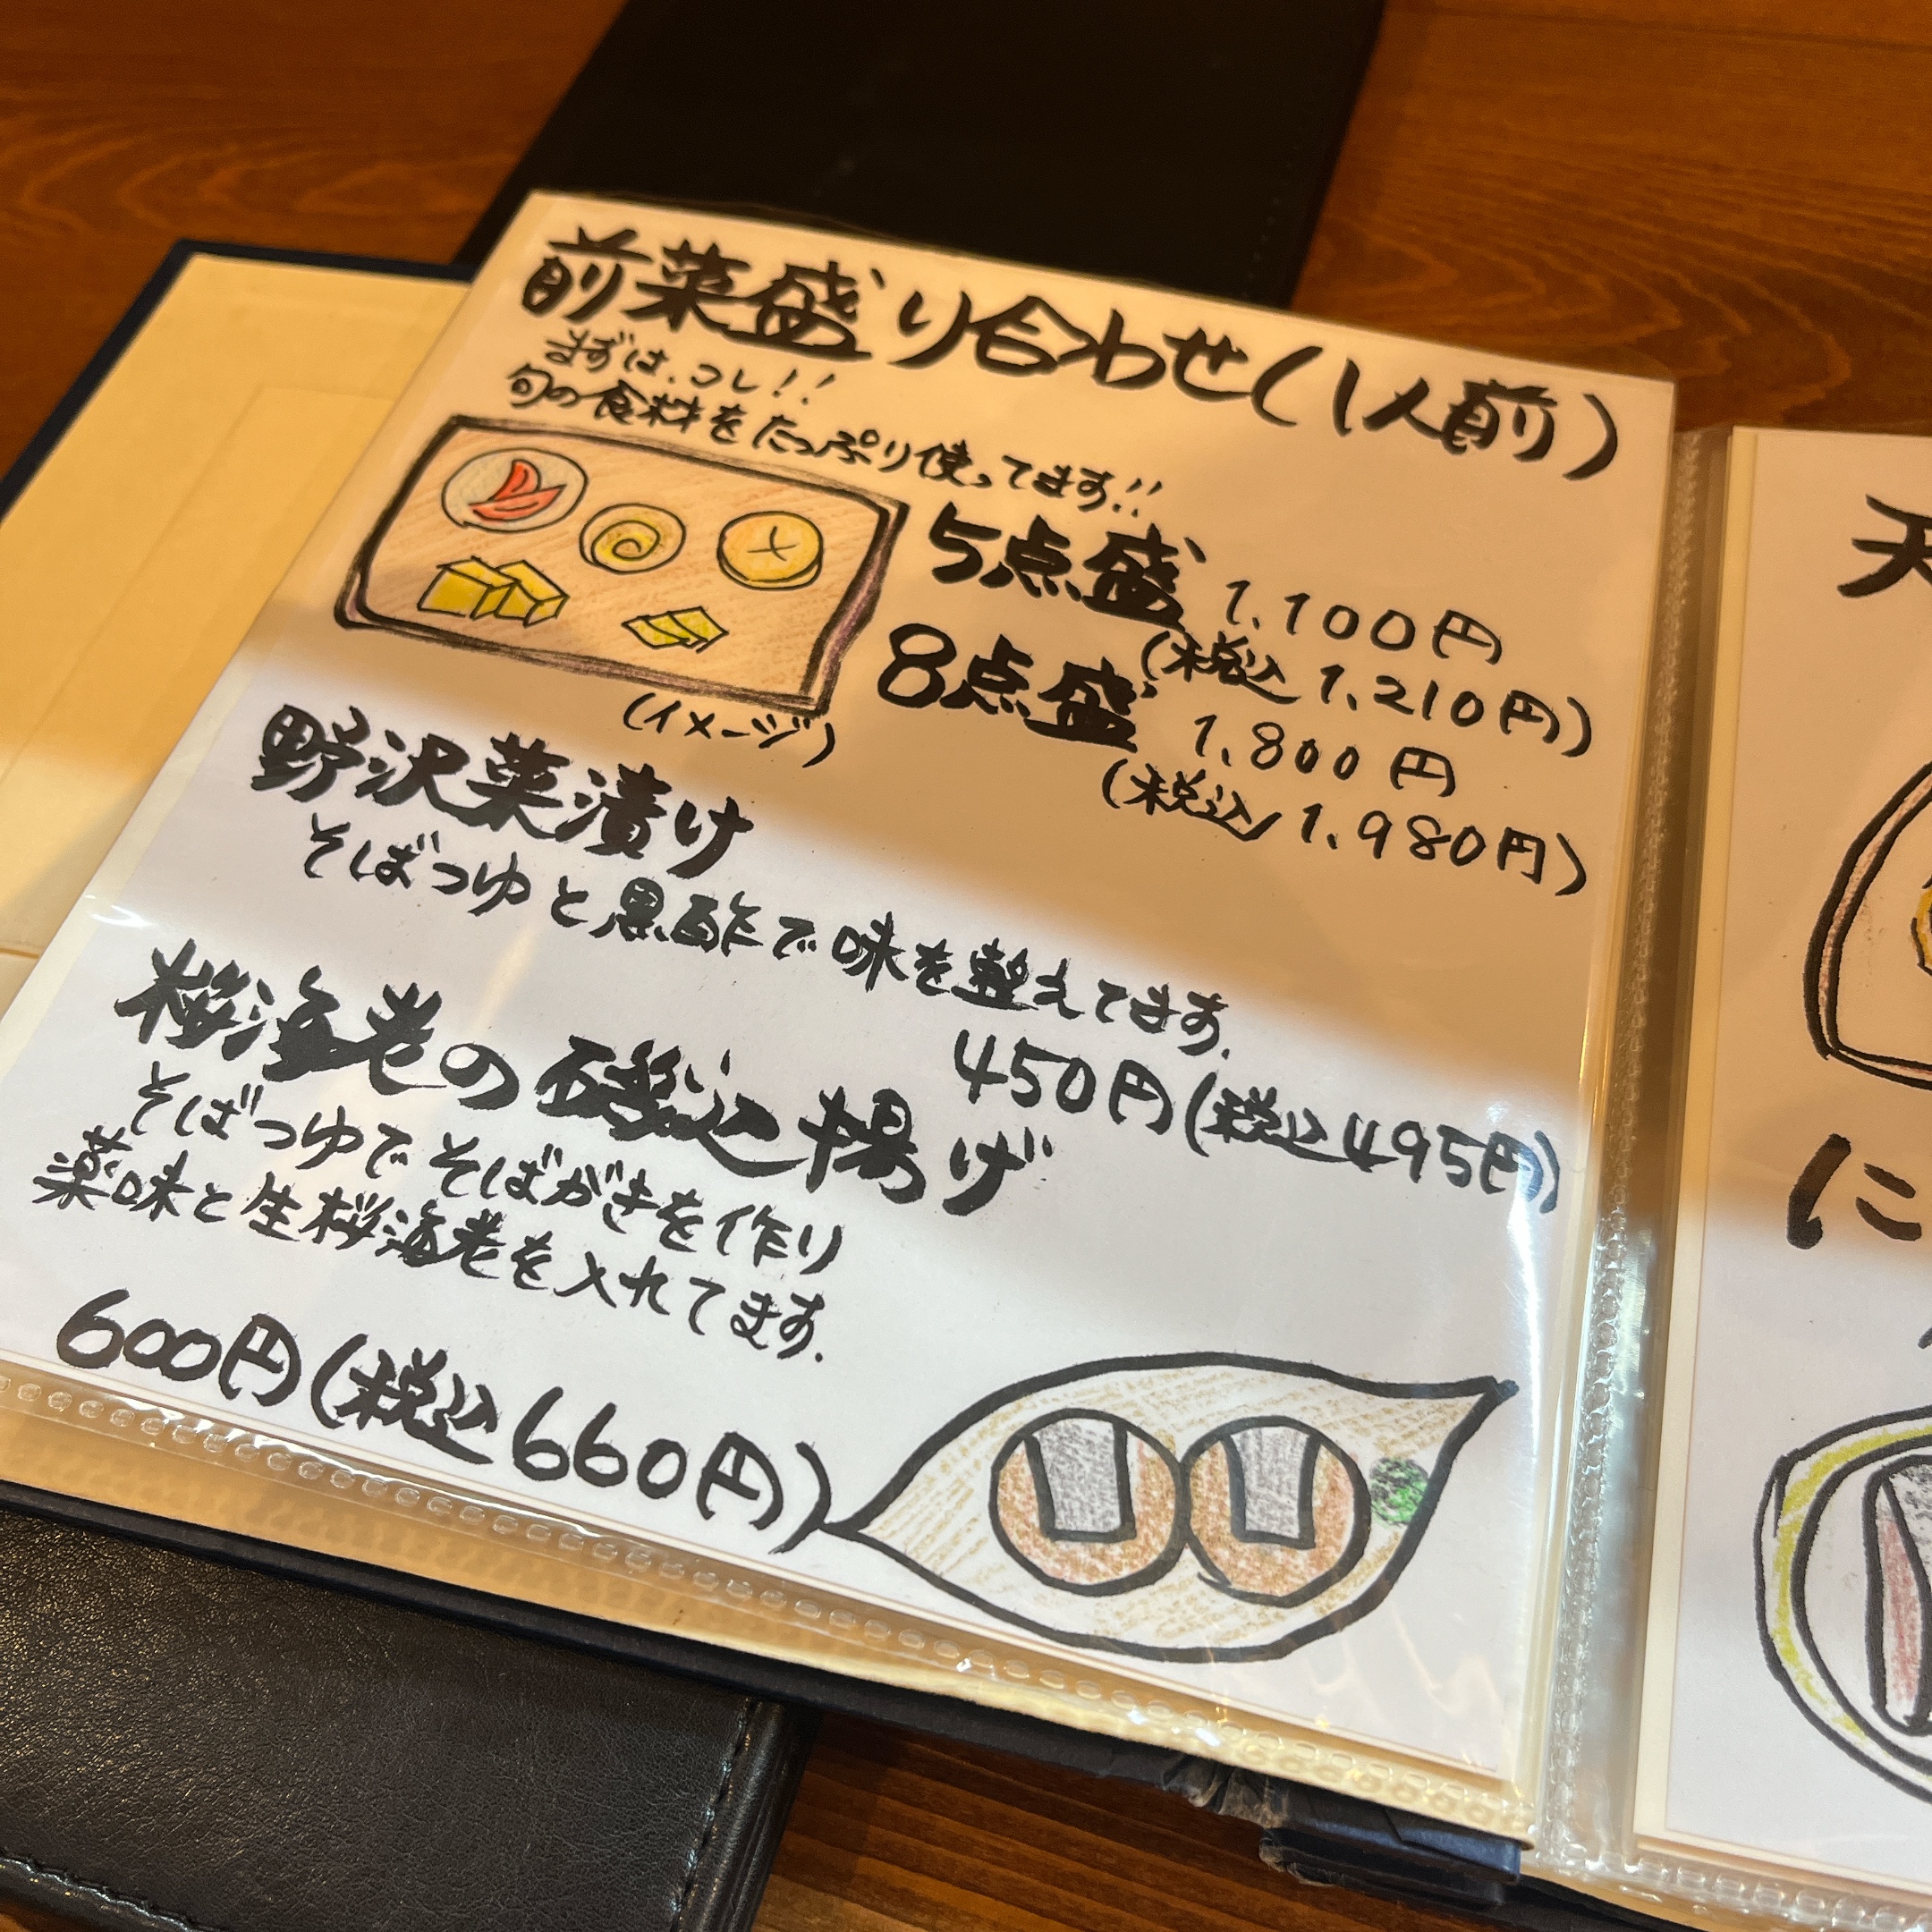 前菜盛り合わせ(1人前)
まずは、コレ!!
旬の食材をたっぷり使ってます!!
5点盛 1,100円
(税込 1,210円)
8点盛 1,800円
(税込 1,980円)
(イメージ)
野沢菜漬け
そばつゆと黒酢で味を整えてます.
450円(税込495円)
桜海老の磯辺揚げ
そばつゆでそばがきを作り
薬味と生桜海老を入れてます.
600円(税込660円)
天
に